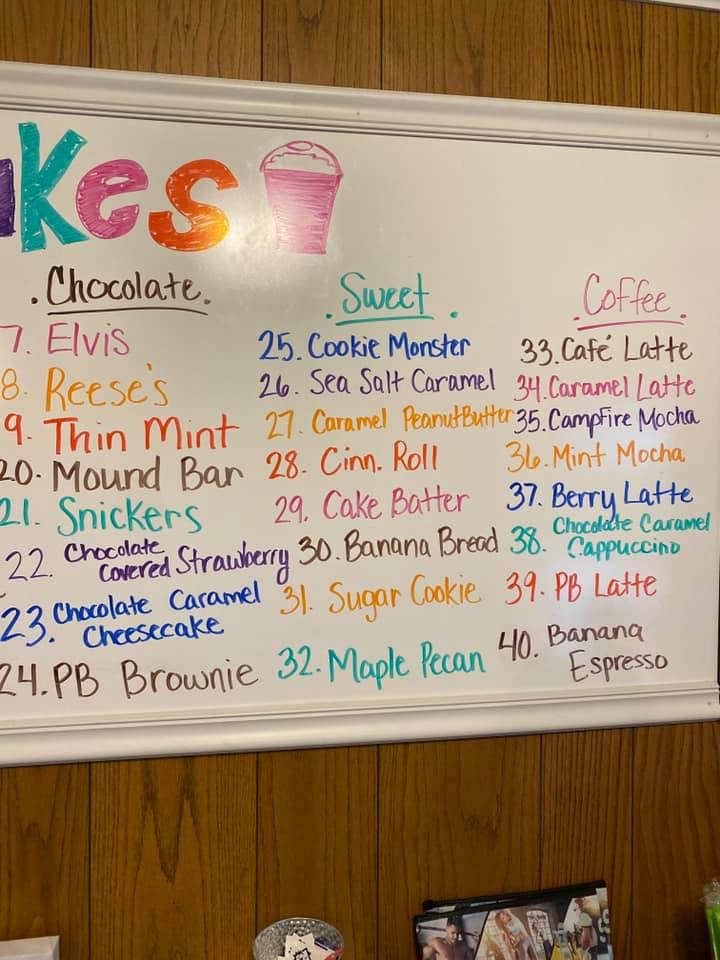 akes
.Chocolate.
7. Elvis
8. Reese's
9. Thin Mint
20. Mound Bar
21. Snickers
22. Chocolate
Covered Strawberry
23. Chocolate Caramel
Cheesecake
24. PB Brownie
.Sweet.
25. Cookie Monster
26. Sea Salt Caramel
27. Caramel PeanutButter
28. Cinn. Roll
29. Cake Batter
30. Banana Bread
31. Sugar Cookie
32. Maple Pecan
.Coffee.
33. Café Latte
34. Caramel Latte
35. Campfire Mocha
36. Mint Mocha
37. Berry Latte
38. Chocolate Caramel
Cappuccino
39. PB Latte
40. Banana
Espresso